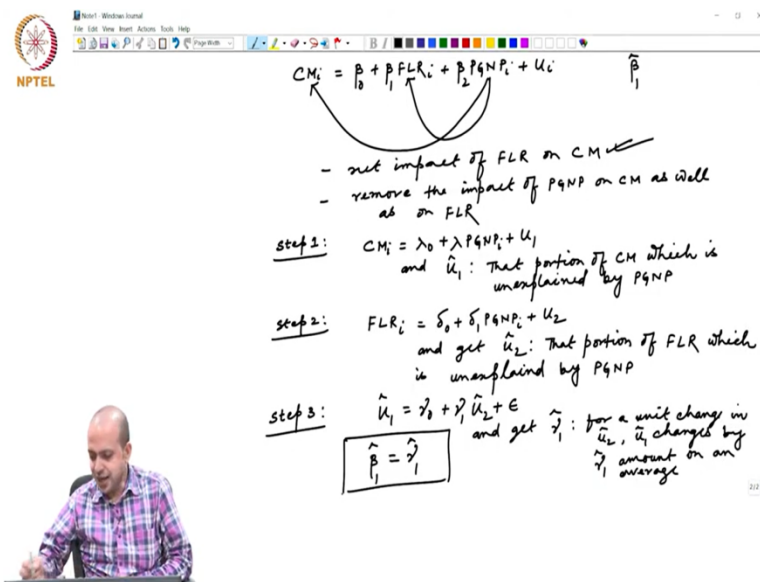 Note1 - Windows Journal
File Edit View Insert Actions Tools Help
Page Width
B I
NPTEL
CMi = β0 + β1 FLRi + β2 PGNPi + ui β̂1
- net impact of FLR on CM
- remove the impact of PGNP on CM as well
as on FLR
step 1: CMi = λ0 + λ PGNPi + u1
and û1 : That portion of CM which is
unexplained by PGNP
step 2: FLRi = δ0 + δ1 PGNPi + u2
and get û2 : That portion of FLR which
is unexplained by PGNP
step 3: û1 = ν0 + ν1 û2 + ϵ
and get ν̂1 : for a unit change in
û2, û1 changes by
ν̂1 amount on an
average
β̂1 = ν̂1
2/2